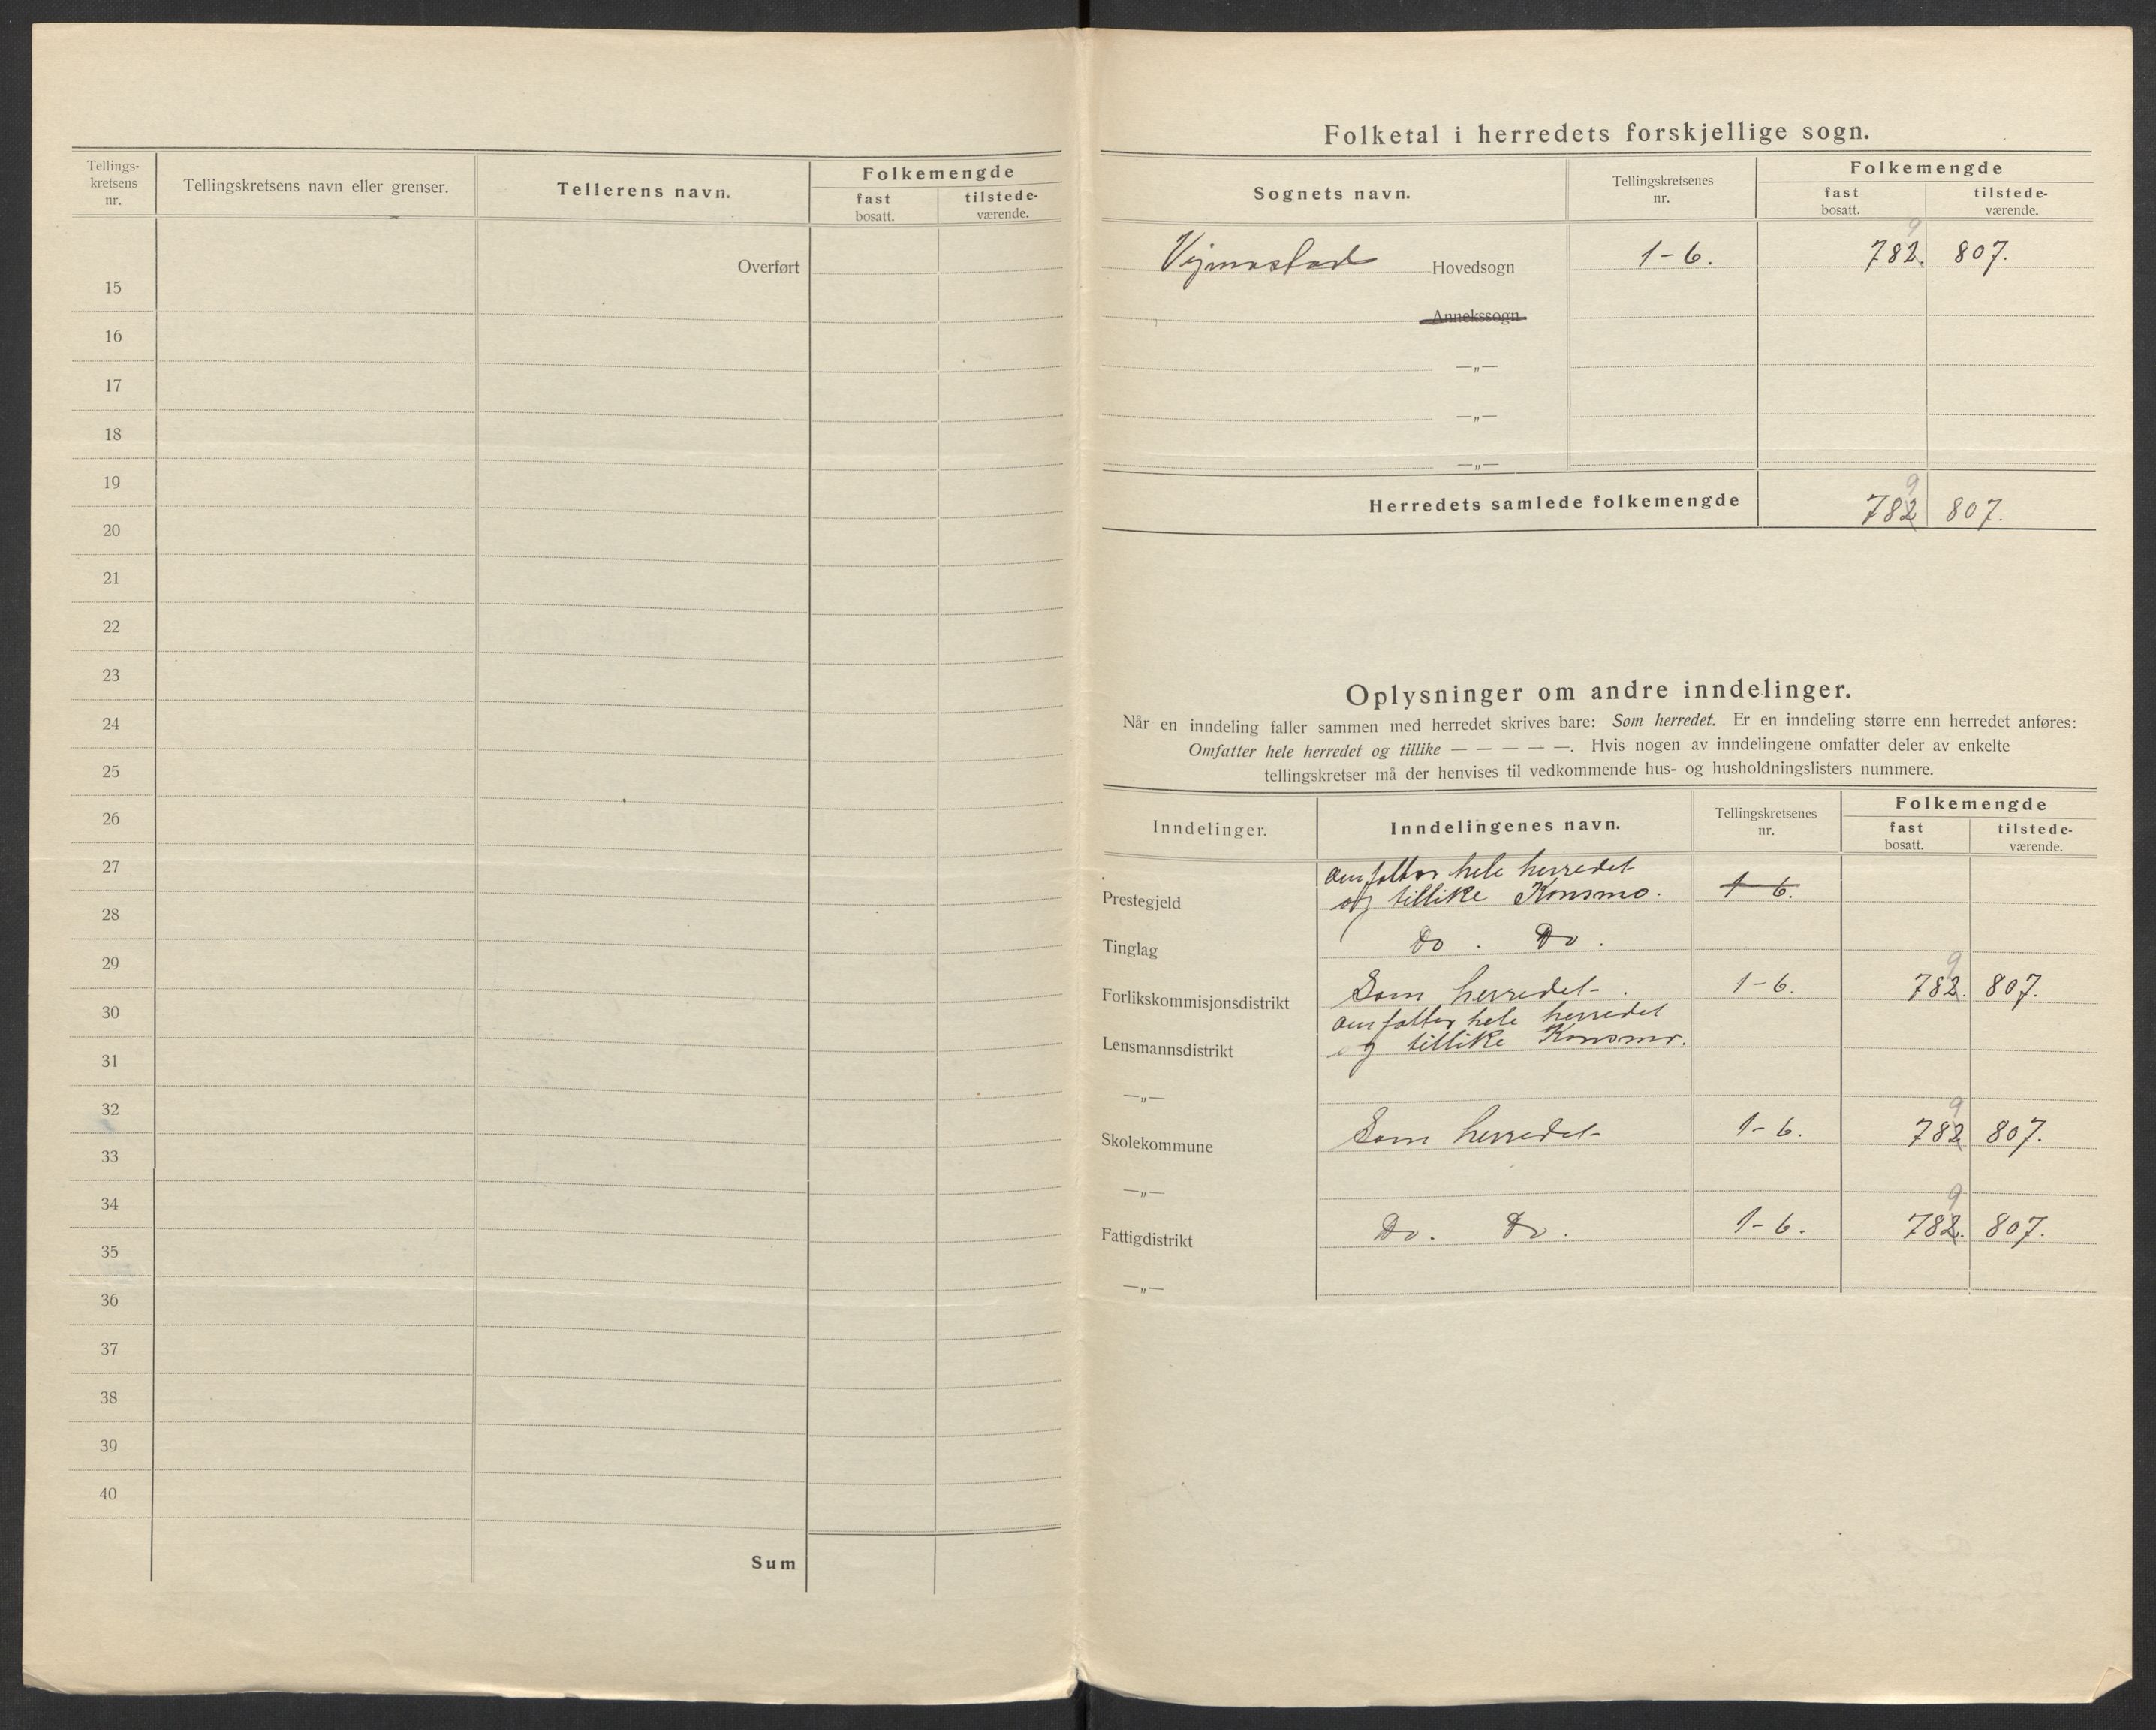 Tellings-
kretsens
nr.
Tellingskretsens navn eller grenser.
Tellerens navn.
Folkemengde
fast
bosatt.
tilstede-
værende.
Overført
15
16
17
18
19
20
21
22
23
24
25
26
27
28
29
30
31
32
33
34
35
36
37
38
39
40
Sum
Folketal i herredets forskjellige sogn.
Sognets navn.
Tellingskretsenes
nr.
Folkemengde
fast
bosatt.
tilstede-
værende.
9
Vigmostad Hovedsogn 1-6. 782. 807.
Annekssogn
—„—
—„—
—„—
9
Herredets samlede folkemengde 782 807.
Oplysninger om andre inndelinger.
Når en inndeling faller sammen med herredet skrives bare: Som herredet. Er en inndeling større enn herredet anføres:
Omfatter hele herredet og tillike — — — — —. Hvis nogen av inndelingene omfatter deler av enkelte
tellingskretser må der henvises til vedkommende hus- og husholdningslisters nummere.
Inndelinger.
Inndelingenes navn.
Tellingskretsenes
nr.
Folkemengde
fast
bosatt.
tilstede-
værende.
omfatter hele herredet
Prestegjeld og tillike Konsmo. 1-6.
Tinglag Do. Do.
9
Forlikskommisjonsdistrikt Som herredet. 1-6. 782. 807.
omfatter hele herredet
Lensmannsdistrikt og tillike Konsmo.
—„—
9
Skolekommune Som herredet 1-6. 782 807.
—„—
9
Fattigdistrikt Do. Do. 1-6. 782. 807.
—„—